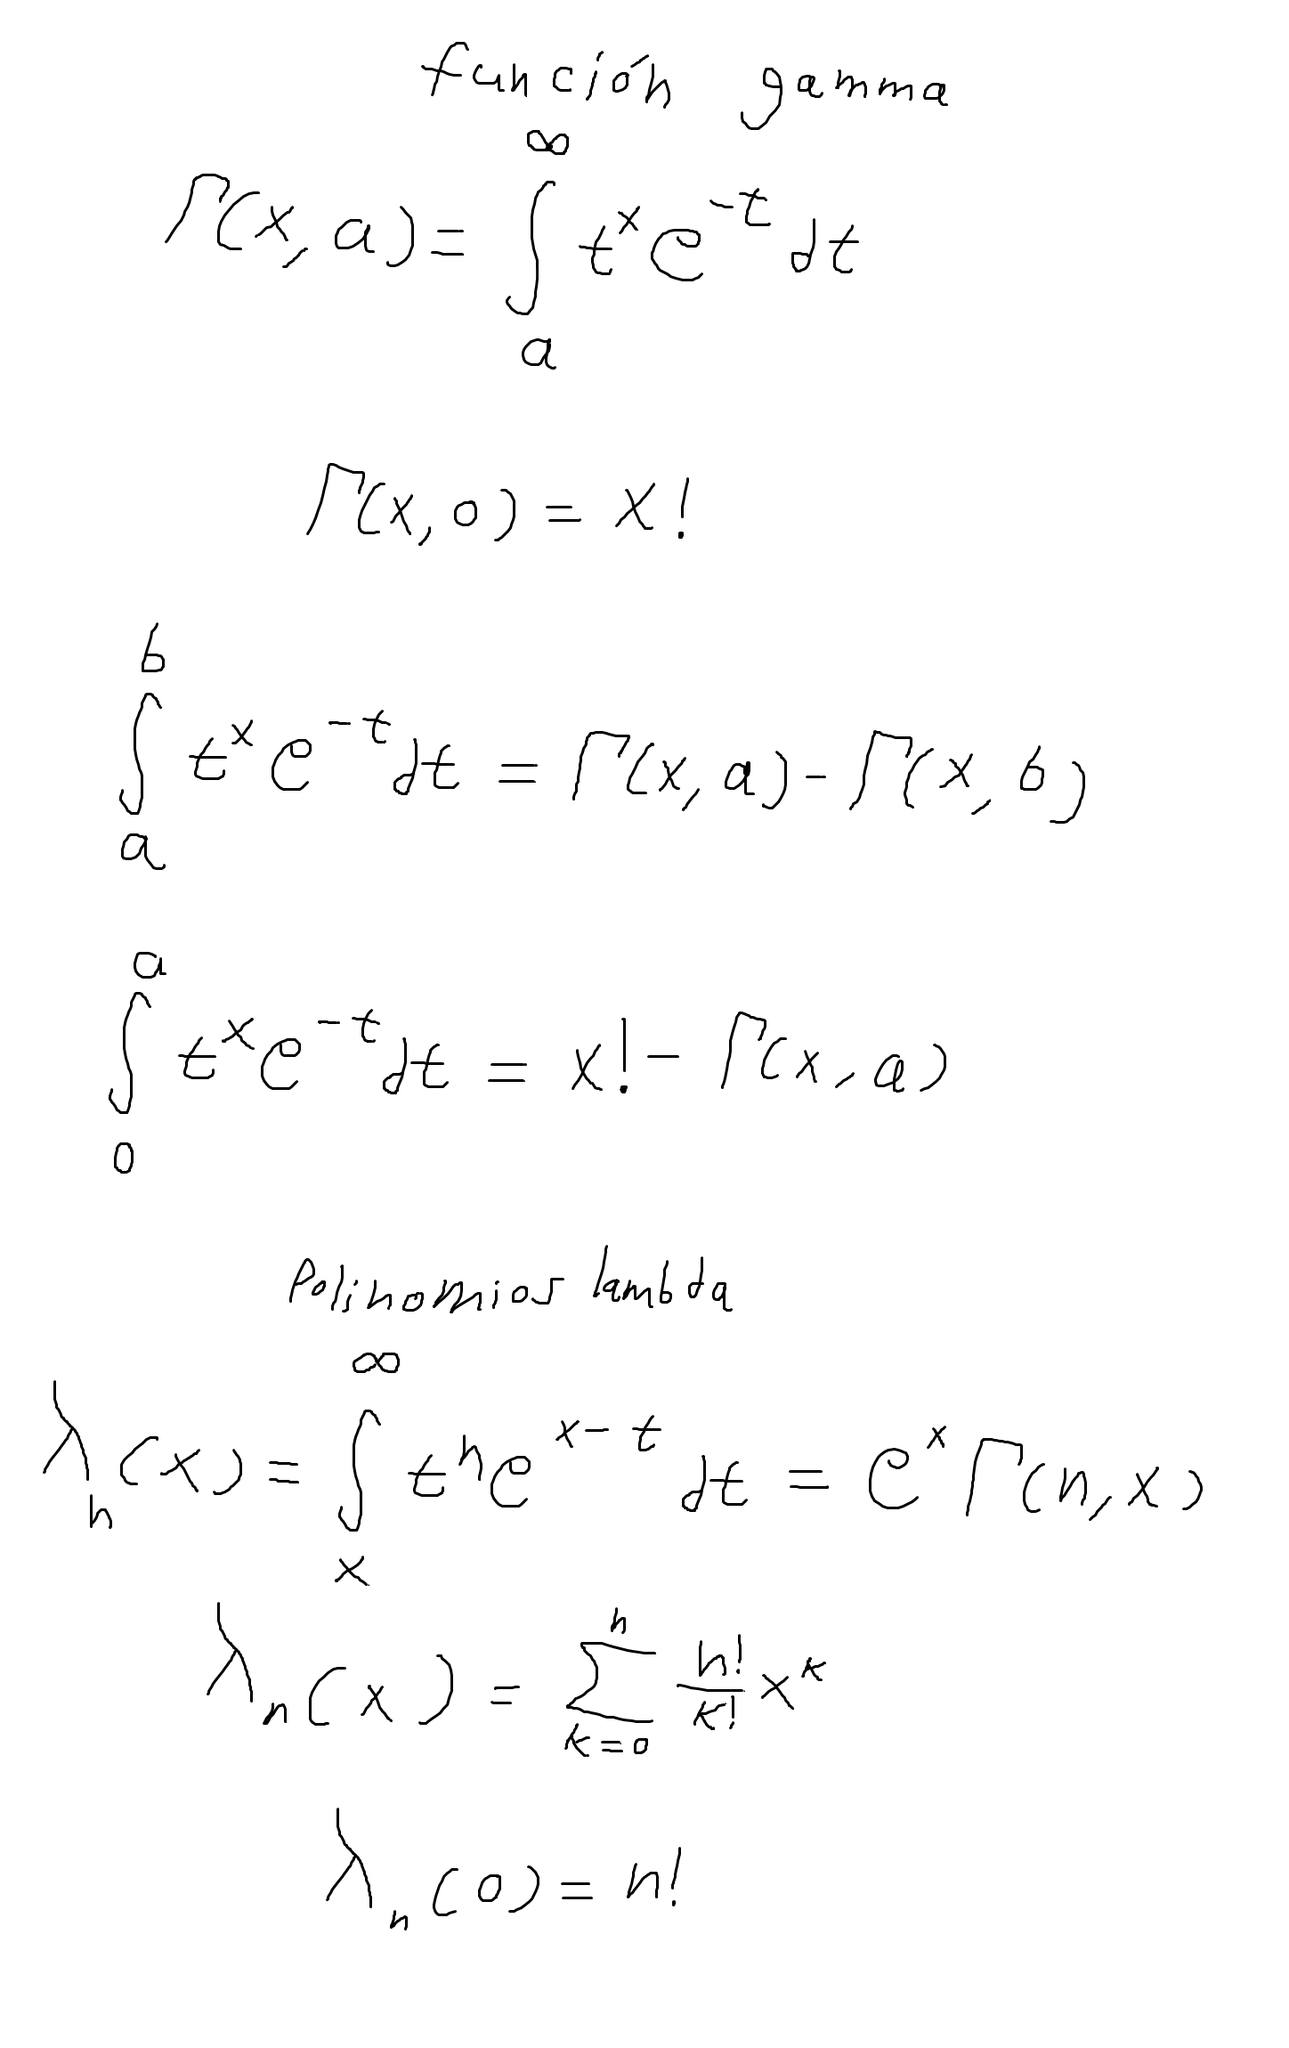 función gamma
Γ(x, a) = ∫_a^∞ t^x e^{-t} dt
Γ(x, 0) = x!
∫_a^b t^x e^{-t} dt = Γ(x, a) - Γ(x, b)
∫_0^a t^x e^{-t} dt = x! - Γ(x, a)
Polinomios lambda
λ_n(x) = ∫_x^∞ t^n e^{x-t} dt = e^x Γ(n, x)
λ_n(x) = ∑_{k=0}^n \frac{n!}{k!} x^k
λ_n(0) = n!